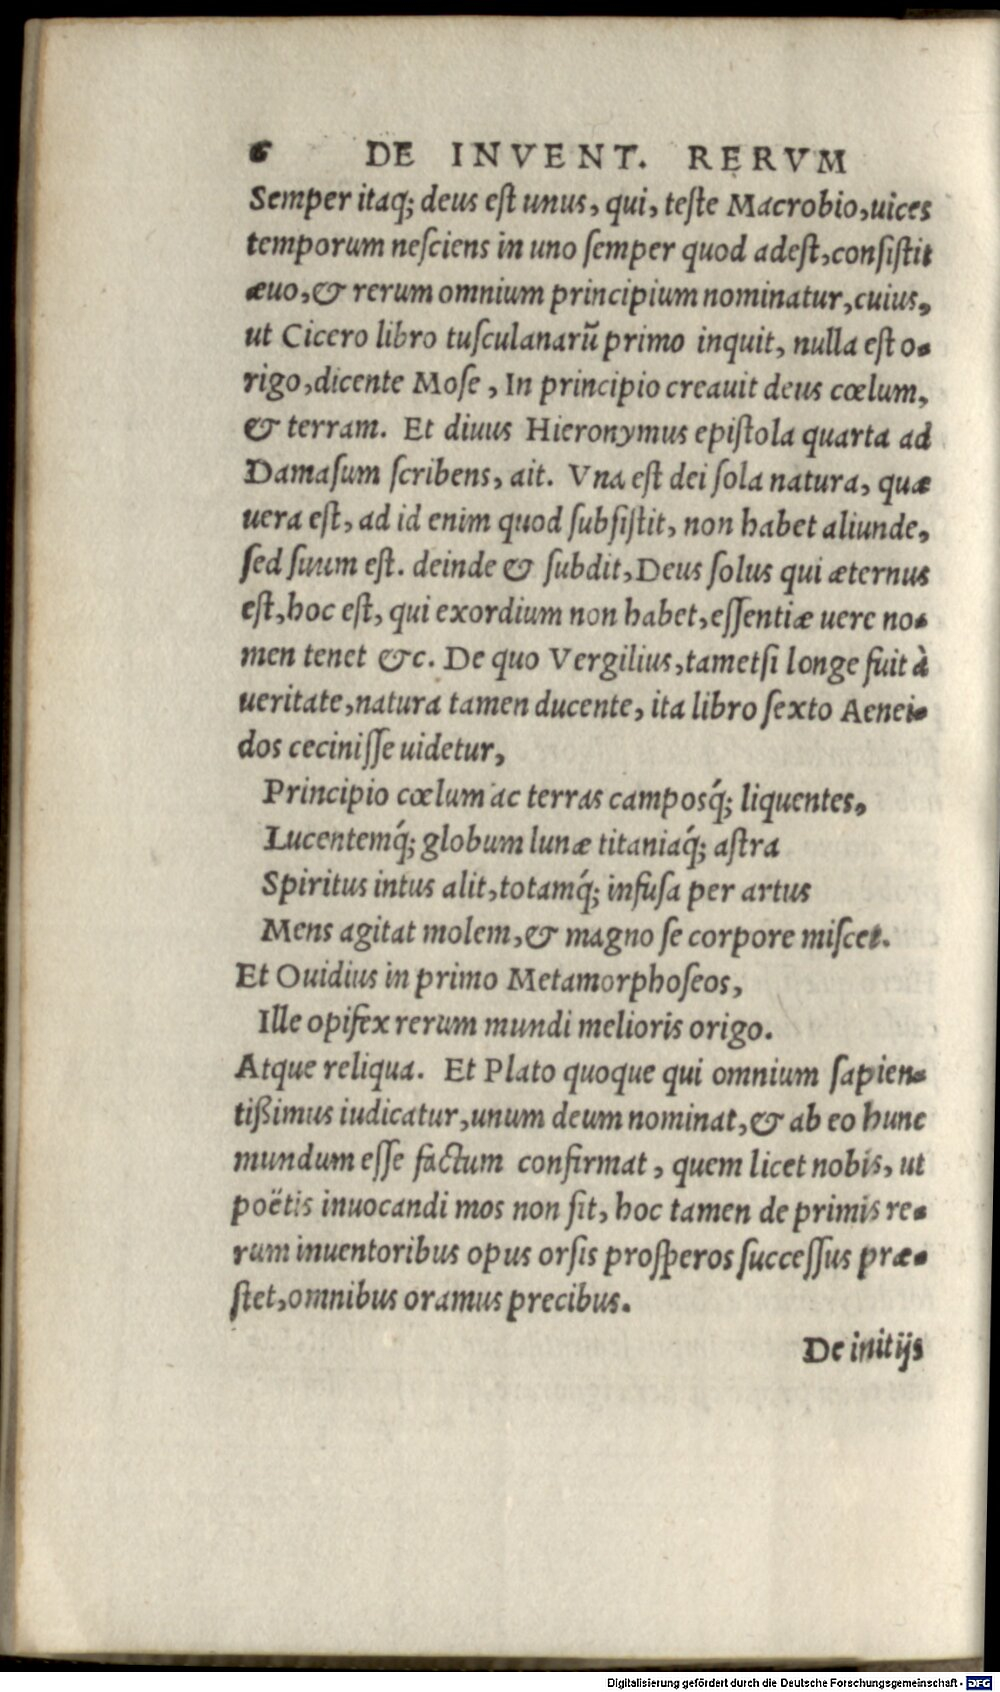 6 DE INVENT. RERVM
Semper itaq; deus eſt unus, qui, teſte Macrobio, uices
temporum neſciens in uno ſemper quod adeſt, conſiſtit
æuo, & rerum omnium principium nominatur, cuius,
ut Cicero libro tuſculanarũ primo inquit, nulla eſt o-
rigo, dicente Moſe, In principio creauit deus cœlum,
& terram. Et diuus Hieronymus epiſtola quarta ad
Damaſum ſcribens, ait. Vna eſt dei ſola natura, quæ
uera eſt, ad id enim quod ſubſiſtit, non habet aliunde,
ſed ſuum eſt. deinde & ſubdit, Deus ſolus qui æternus
eſt, hoc eſt, qui exordium non habet, eſſentiæ uere no-
men tenet &c. De quo Vergilius, tametſi longe fuit à
ueritate, natura tamen ducente, ita libro ſexto Aenei-
dos ceciniſſe uidetur,
Principio cœlum ac terras camposq́; liquentes,
Lucentemq́; globum lunæ titaniaq́; aſtra
Spiritus intus alit, totamq́; infuſa per artus
Mens agitat molem, & magno ſe corpore miſcet.
Et Ouidius in primo Metamorphoſeos,
Ille opifex rerum mundi melioris origo.
Atque reliqua. Et Plato quoque qui omnium ſapien-
tißimus iudicatur, unum deum nominat, & ab eo hunc
mundum eſſe factum confirmat, quem licet nobis, ut
poëtis inuocandi mos non ſit, hoc tamen de primis re-
rum inuentoribus opus orſis proſperos ſucceſſus præ-
ſtet, omnibus oramus precibus.
De initijs
Digitalisierung gefördert durch die Deutsche Forschungsgemeinschaft - DFG